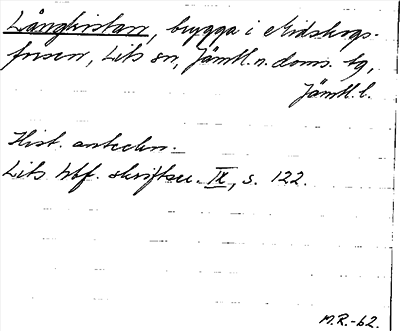 Långkistan, brygga i Midskogs-
forsen, Lits sn, Jämtl. n. doms. tg,
Jämtl. l.
Hist. anteckn.
Lits hbf. skriftser. IX, s. 122.
M.R.-62.